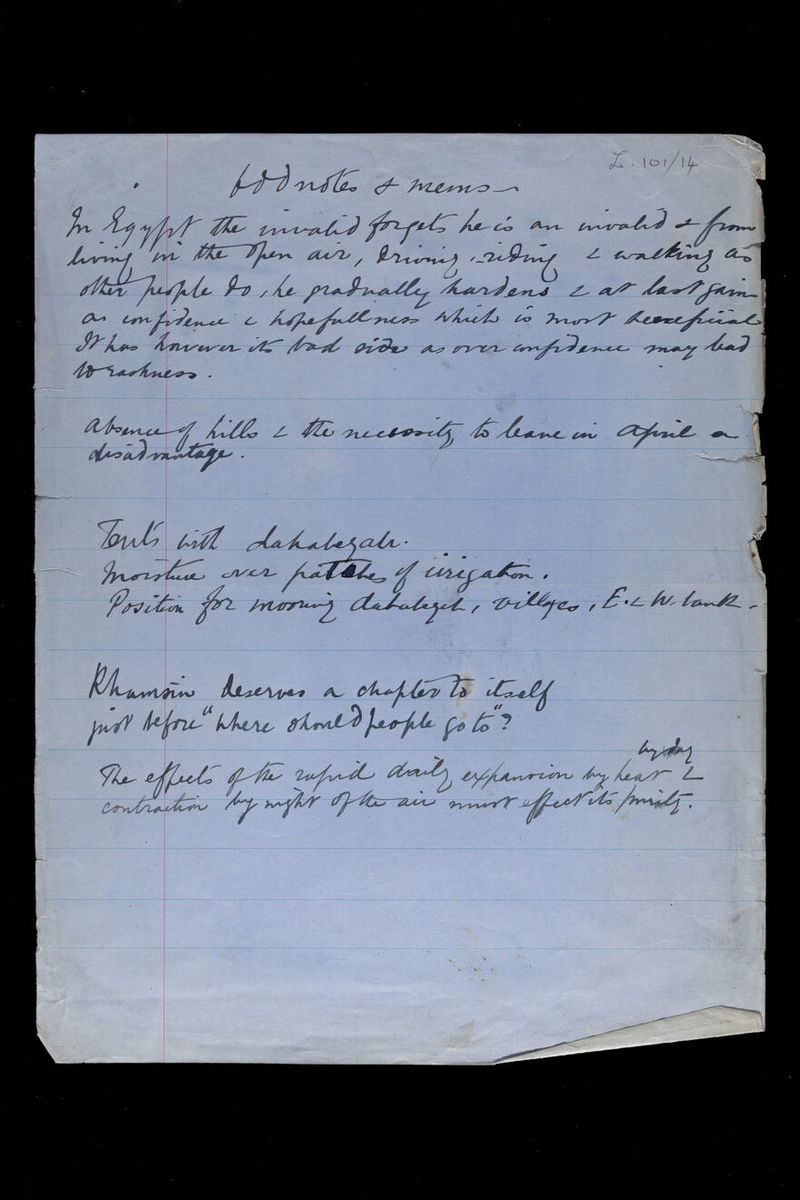 L. 101/14
Odd notes & mems
In Egypt the invalid forgets he is an invalid & from
living in the open air, driving, riding & walking as
other people do, he gradually hardens & at last gains
a confidence & hopefullness which is most beneficial
It has however its bad side as over confidence may lead
to rashness.
Absence of hills & the necessity to leave in April a
disadvantage.
Tents with dahabeyah.
Moisture over patches of irrigation.
Position for mooring dahabeyah, villages, E. & W. bank.
Khamsin deserves a chapter to itself
just before "where should people go to"?
by day
The effects of the rapid daily expansion by heat &
contraction by night of the air must effect its purity.